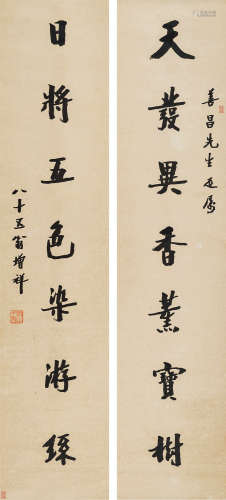 善昌先生正屬
天發異香薰寶樹
日將五色染游絲
八十五翁增祥